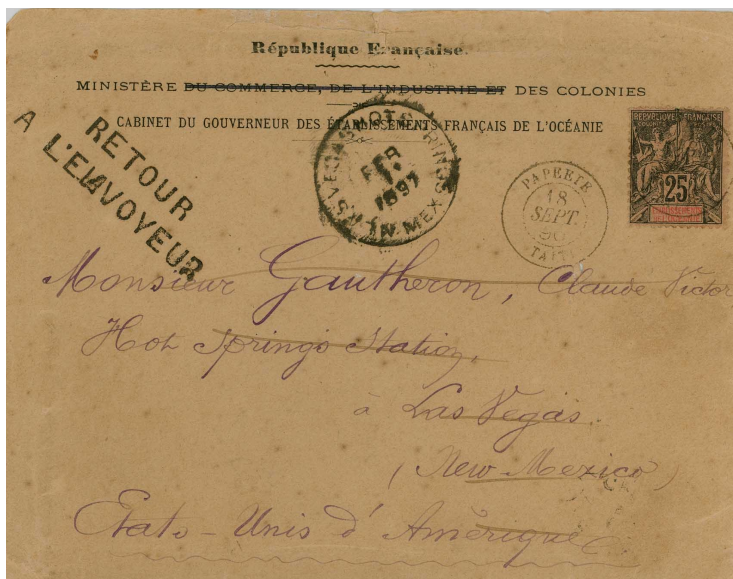 République Française.
MINISTÈRE DU COMMERCE, DE L'INDUSTRIE ET DES COLONIES
CABINET DU GOUVERNEUR DES ÉTABLISSEMENTS FRANÇAIS DE L'OCÉANIE
A
RETOUR
L'ENVOYEUR
LAS VEGAS HOT SPRINGS
FEB
1897
N. MEX
PAPEETE
18
SEPT.
TAITI
RÉPUBLIQUE FRANÇAISE
COLONIES
25
Monsieur Gautheron, Claude Victor
Hot Springs Station,
à Las Vegas.
(New-Mexico)
Etats-Unis d'Amérique